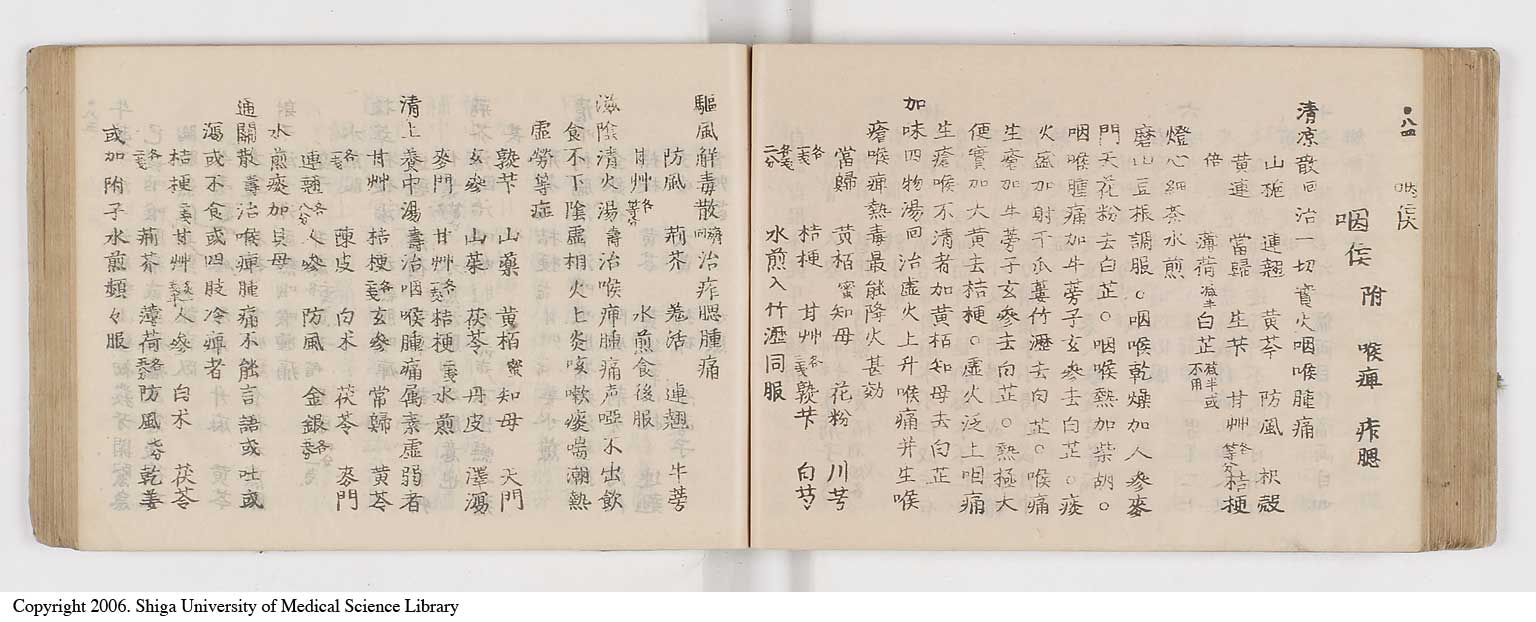 八四
咽喉
咽喉 附 喉痺 痄腮
清凉散回治一切實火咽喉腫痛
山梔 連翹 黄芩 防風 枳殻
黄連 當歸 生芐 甘艸各等分 桔梗
倍 薄荷减半 白芷减半或不用
燈心細茶水煎
磨山豆根調服。咽喉乾燥加人參麥
門天花粉去白芷。咽喉熱加柴胡。
咽喉腫痛加牛蒡子玄參去白芷。痰
火盛加射干瓜蔞竹瀝去白芷。喉痛
生瘡加牛蒡子玄參去白芷。熱極大
便實加大黄去桔梗。虚火泛上咽痛
生瘡喉不清者加黄栢知母去白芷
加味四物湯回治虚火上升喉痛并生喉
瘡喉痺熱毒最能降火甚効
當歸 黄栢蜜 知母 花粉 川芎
各一戔 桔梗 甘艸各三戔 熟芐 白芍
各一戔二分 水煎入竹瀝同服
驅風解毒散濟回治痄腮腫痛
防風 荊芥 羌活 連翹 牛蒡
甘艸各等分 水煎食後服
滋陰清火湯壽治喉痺腫痛声啞不出飲
食不下陰虚相火上炎咳嗽痰喘潮熱
虚勞等症
熟芐 山藥 黄栢蜜 知母 天門
玄參 山茱 茯苓 丹皮 澤瀉
麥門 甘艸 桔梗 水煎
清上養中湯壽治咽喉腫痛属素虚弱者
甘艸 桔梗 玄參 當歸 黄芩
各一戔 陳皮 白朮 茯苓 麥門
連翹各八分 人參 防風 金銀
水煎痰加貝母
通關散壽治喉痺腫痛不能言語或吐或
瀉或不食或四肢冷痺者
桔梗 甘艸 人參 白朮 茯苓
各一戔 荊芥 薄荷 防風 乾姜
或加附子水煎頻々服
Copyright 2006. Shiga University of Medical Science Library